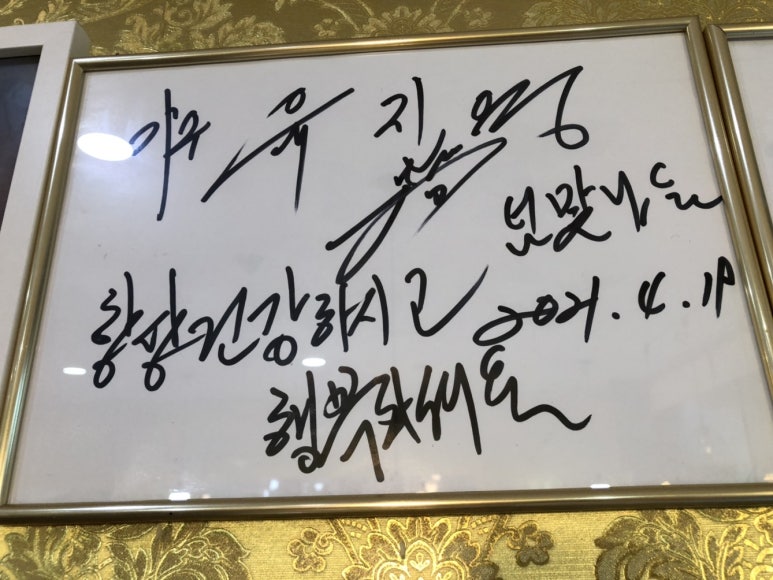 가수 지영
맛나요
항상 건강하시고 2021. 4. 19
행복하세요